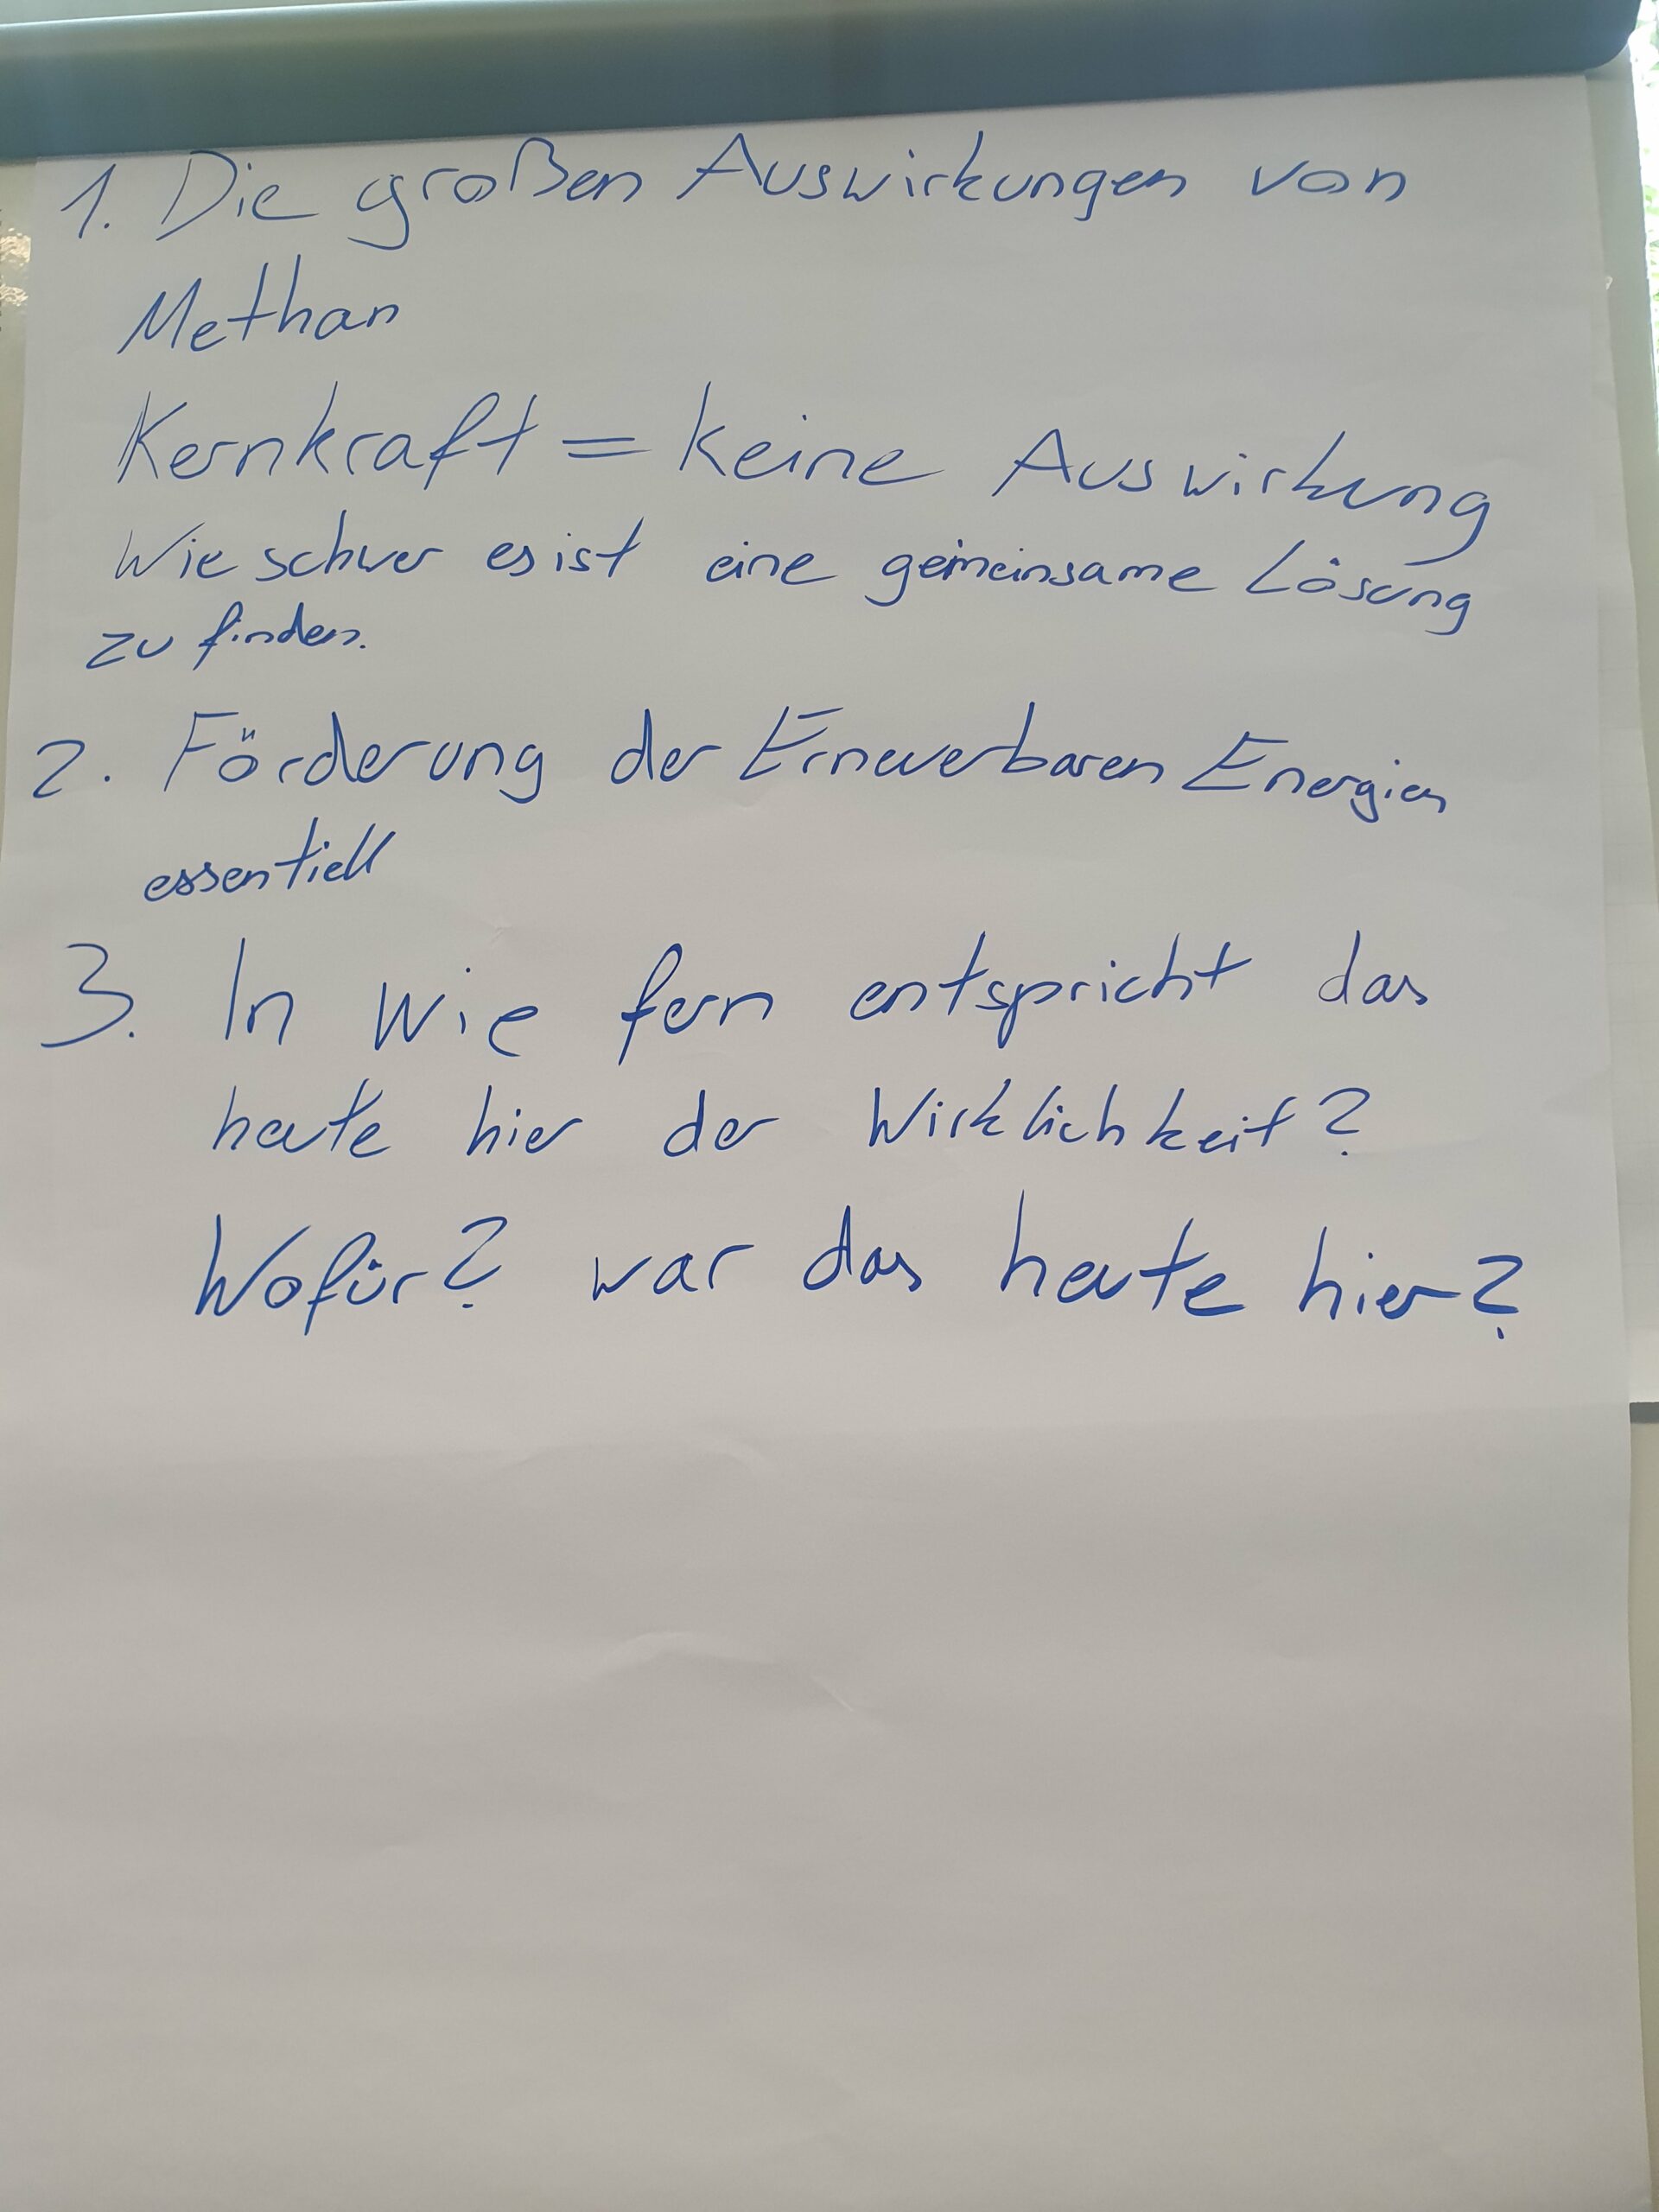 1. Die großen Auswirkungen von
Methan
Kernkraft = keine Auswirkung
Wie schwer es ist eine gemeinsame Lösung
zu finden.
2. Förderung der Erneuerbaren Energien
essentiell
3. In wie fern entspricht das
heute hier der Wirklichkeit?
Wofür? war das heute hier?